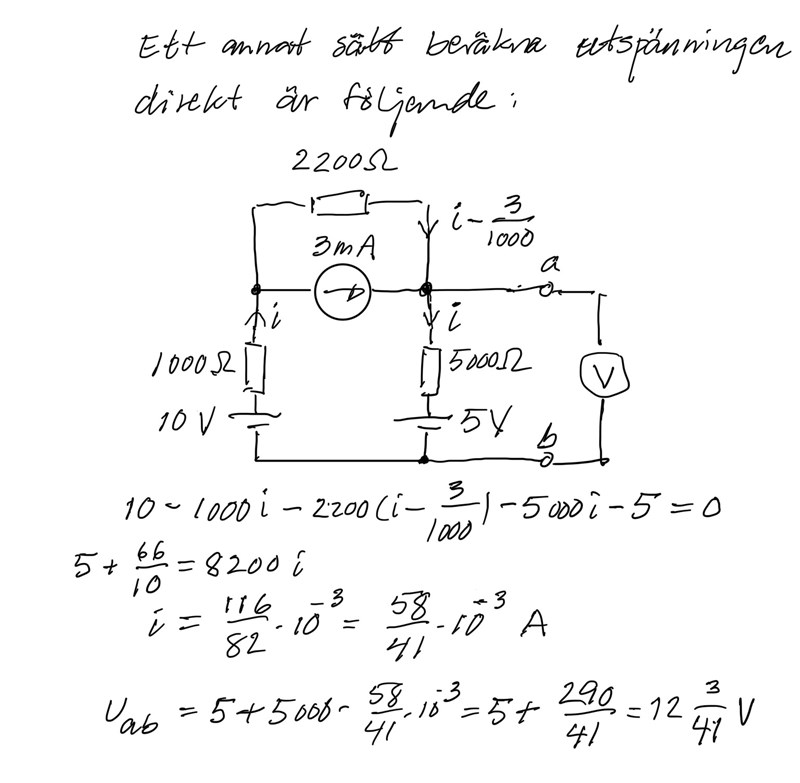 Ett annat sätt beräkna utspänningen
direkt är följande:
2200Ω
i - 3/1000
3mA
a
i
i
1000Ω
5000Ω
V
10 V
5V
b
10 - 1000 i - 2200 (i - 3/1000) - 5000i - 5 = 0
5 + 66/10 = 8200 i
i = 116/82 · 10⁻³ = 58/41 · 10⁻³ A
U_ab = 5 + 5000 · 58/41 · 10⁻³ = 5 + 290/41 = 12 3/41 V